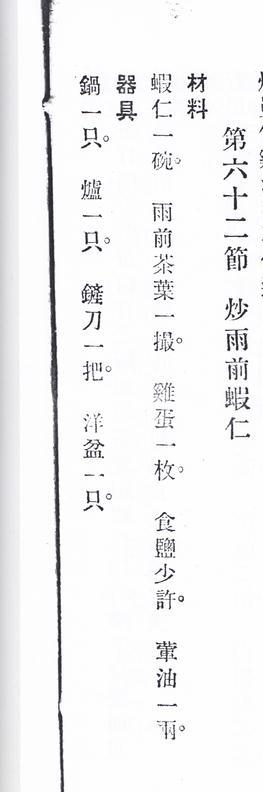 第六十二節　炒雨前蝦仁
材料
蝦仁一碗。　雨前茶葉一撮。　雞蛋一枚。　食鹽少許。　葷油一兩。
器具
鍋一只。　爐一只。　鏟刀一把。　洋盆一只。